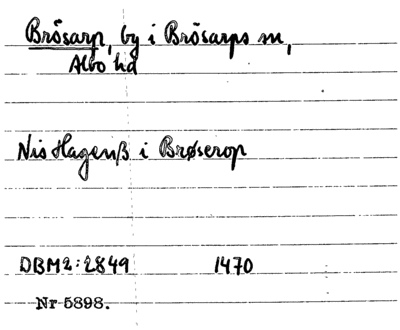 Brösarp, by i Brösarps sn,
Albo hd
Nis Hagenß i Brøserop
DBM2:2849 1470
Nr 5898.